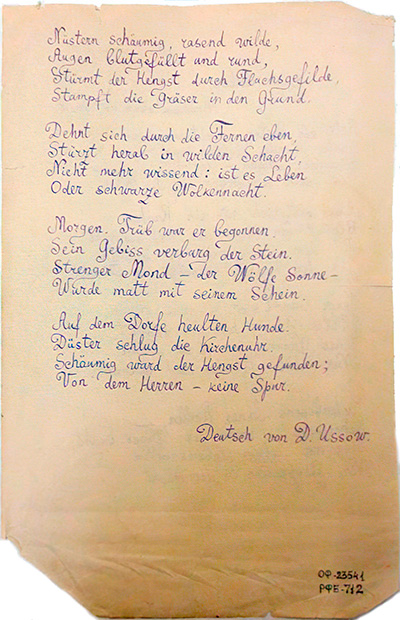 Nüstern schäumig, rasend wilde,
Augen blutgefüllt und rund,
Stürmt der Hengst durch Flachsgefilde,
Stampft die Gräser in den Grund.
Dehnt sich durch die Fernen eben,
Stürzt herab in wilden Schacht,
Nicht mehr wissend: ist es Leben
Oder schwarze Wolkennacht.
Morgen. Trüb war er begonnen.
Sein Gebiss verbarg der Stein.
Strenger Mond – der Wölfe Sonne –
Wurde matt mit seinem Schein.
Auf dem Dorfe heulten Hunde.
Düster schlug die Kirchenuhr.
Schäumig ward der Hengst gefunden;
Von dem Herren – keine Spur.
Deutsch von D. Ussow.
ОФ-23541
РФЕ-712